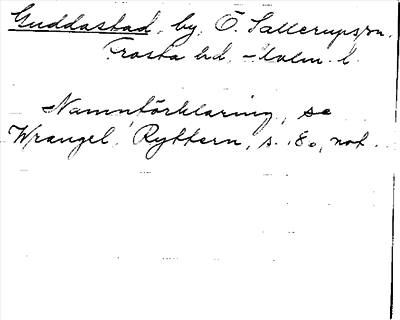 Guddastad, by, Ö. Sallerups sn.
Frosta hd, Malm. l.
Namnförklaring, se
Wrangel, Ryttern, s. 80, not.